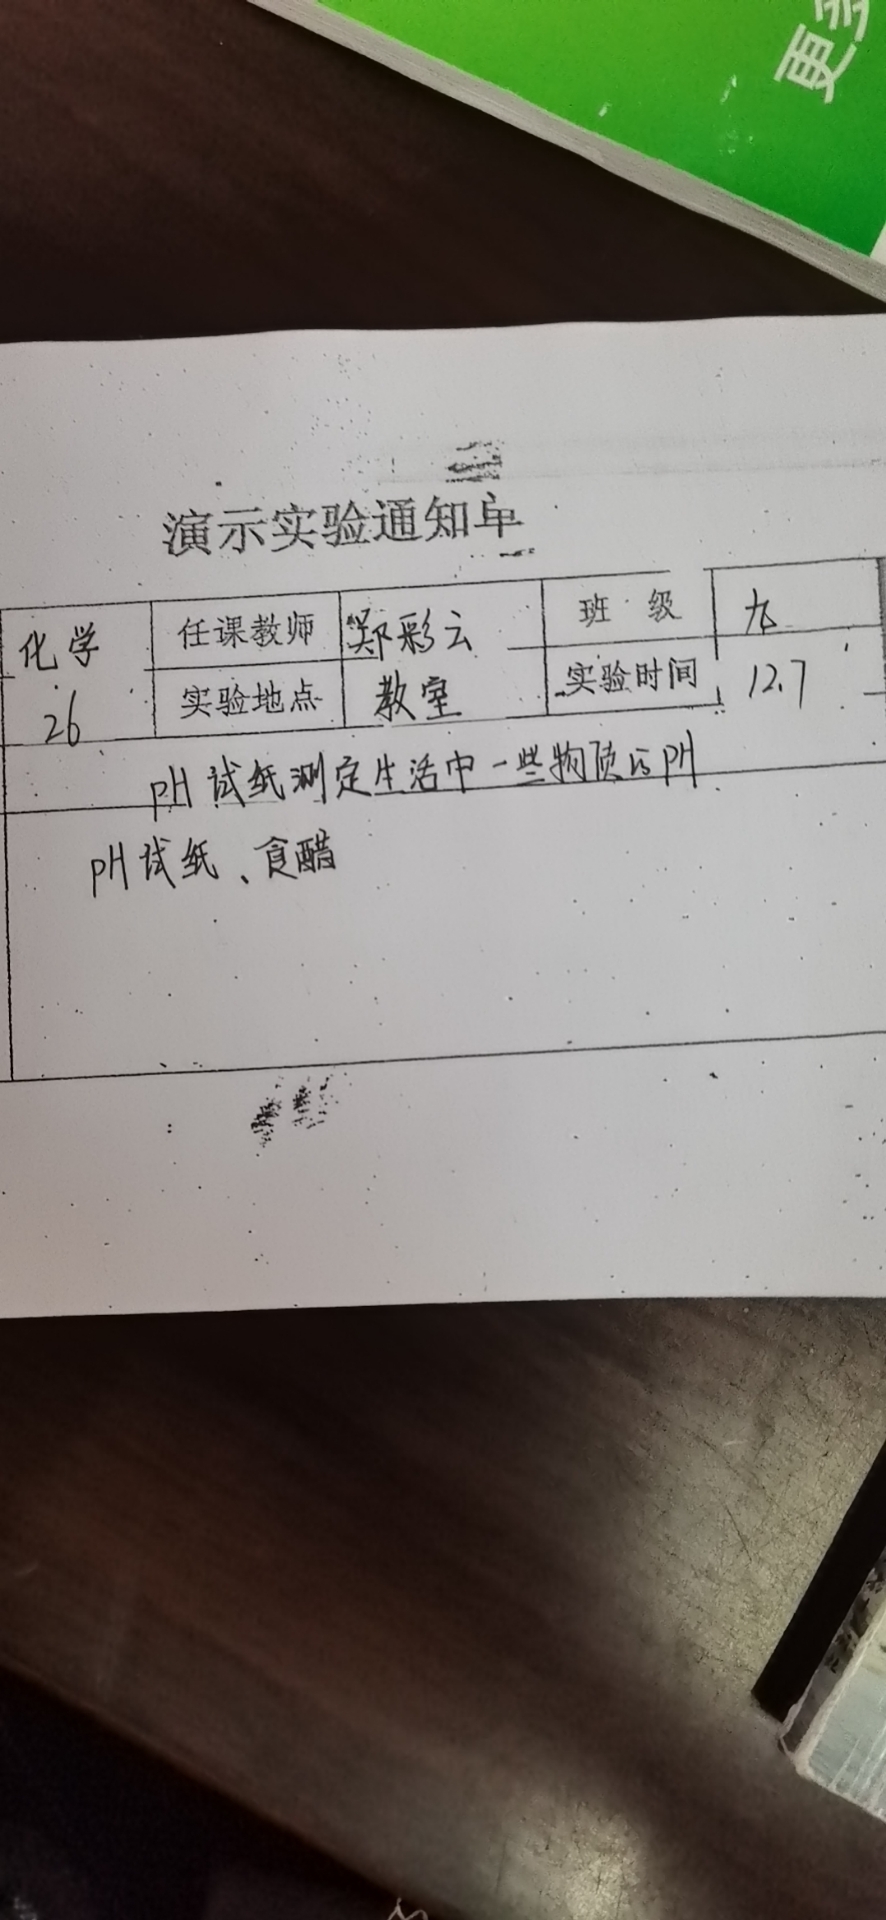 更多
演示实验通知单
化学 任课教师 郑彩云 班 级 九
26 实验地点 教室 实验时间 12.7
pH试纸测定生活中一些物质的pH
pH试纸、食醋